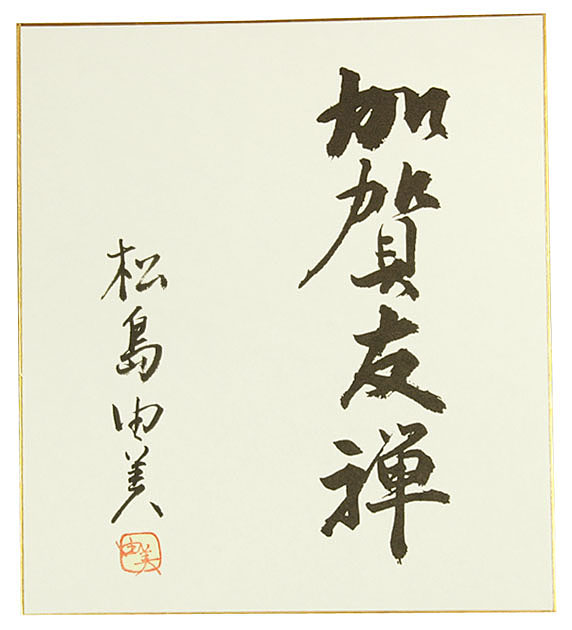 加賀友禅
松島由美
由美